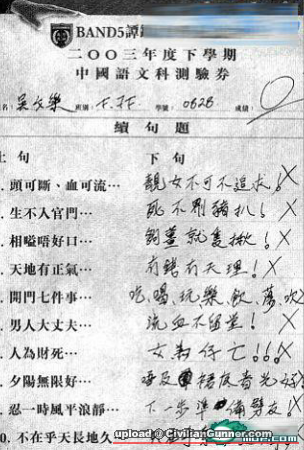 BAND5譚
二〇〇三年度下學期
中國語文科測驗券
名: 吳文樂 班別: F.1F 學號: 0626 成績: 0
續句題
上句 下句
. 頭可斷、血可流… 靚女不可不追求!
. 生不入官門… 死不劏豬扒!
. 相嗌唔好口… 劏薑就隻揪!
. 天地有正氣… 有錯有天理!
. 開門七件事… 吃、喝、玩、樂、飲、蕩、吹!
. 男人大丈夫… 流血不留堂!
. 人為財死… 女為仔亡!!!
. 夕陽無限好…
. 忍一時風平浪靜… 下一步準備劈友!
0. 不在乎天長地久…
upload @ CivilianGunner.com